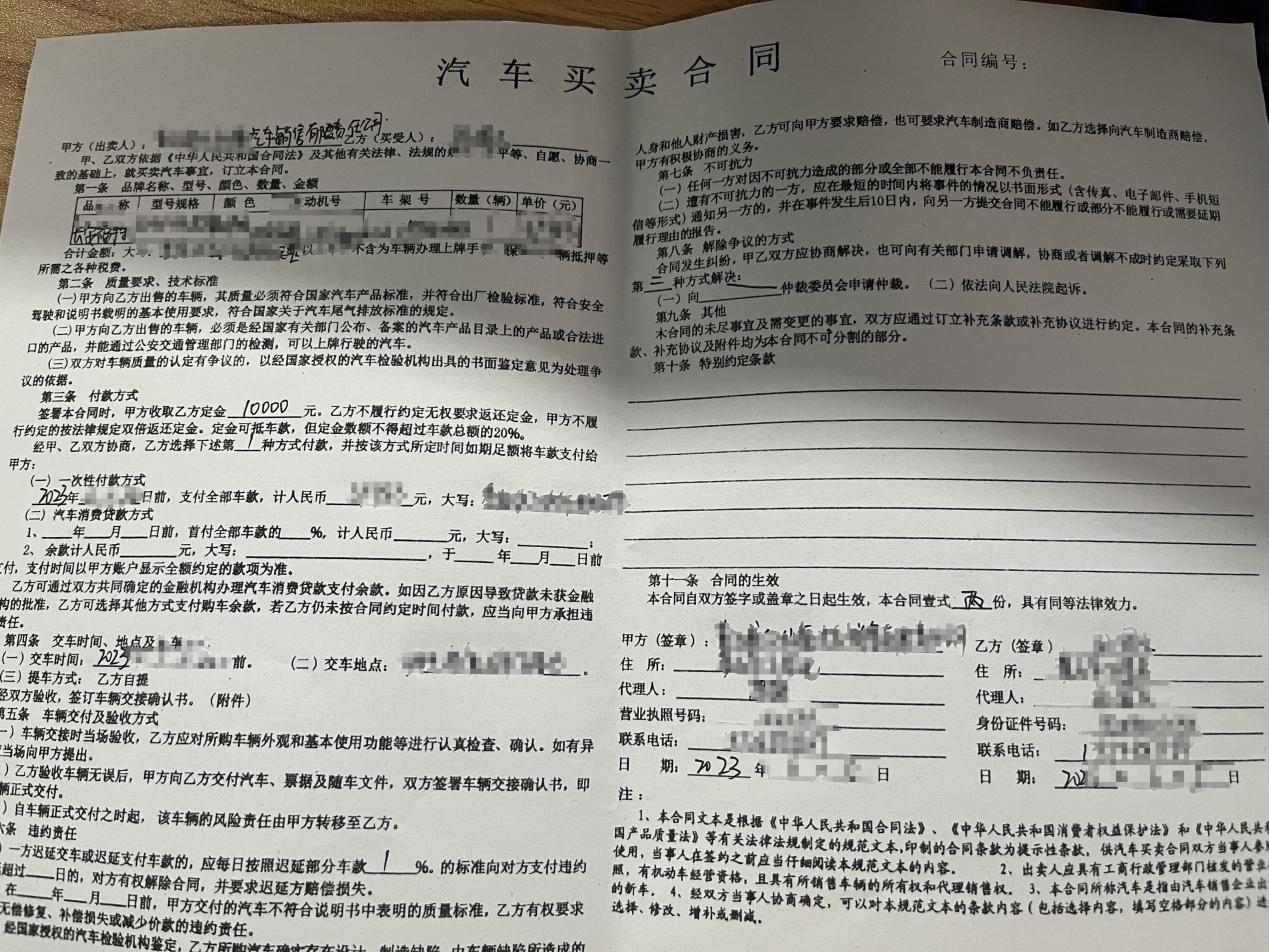 汽车买卖合同
合同编号：
甲方（出卖人）： 汽车销售有限责任公司 乙方（买受人）：
甲、乙双方依据《中华人民共和国合同法》及其他有关法律、法规的 平等、自愿、协商一
致的基础上，就买卖汽车事宜，订立本合同。
第一条 品牌名称、型号、颜色、数量、金额
品 称 型号规格 颜 色 动机号 车 架 号 数量（辆） 单价（元）
合计金额：大 以 不含为车辆办理上牌手 保 辆抵押等
所需之各种税费。
第二条 质量要求、技术标准
(一)甲方向乙方出售的车辆，其质量必须符合国家汽车产品标准，并符合出厂检验标准，符合安全
驾驶和说明书载明的基本使用要求，符合国家关于汽车尾气排放标准的规定。
(二)甲方向乙方出售的车辆，必须是经国家有关部门公布、备案的汽车产品目录上的产品或合法进
口的产品，并能通过公安交通管理部门的检测，可以上牌行驶的汽车。
(三)双方对车辆质量的认定有争议的，以经国家授权的汽车检验机构出具的书面鉴定意见为处理争
议的依据。
第三条 付款方式
签署本合同时，甲方收取乙方定金 10000 元。乙方不履行约定无权要求返还定金，甲方不履
行约定的按法律规定双倍返还定金。定金可抵车款，但定金数额不得超过车款总额的20%。
经甲、乙双方协商，乙方选择下述第 1 种方式付款，并按该方式所定时间如期足额将车款支付给
甲方：
(一) 一次性付款方式
2023年 日前，支付全部车款，计人民币 元，大写：
(二) 汽车消费贷款方式
1、 年 月 日前，首付全部车款的 %，计人民币 元，大写： ；
2、余款计人民币 元，大写： ，于 年 月 日前
付，支付时间以甲方账户显示全额约定的款项为准。
乙方可通过双方共同确定的金融机构办理汽车消费贷款支付余款。如因乙方原因导致贷款未获金融
构的批准，乙方可选择其他方式支付购车余款，若乙方仍未按合同约定时间付款，应当向甲方承担违
责任。
第四条 交车时间、地点及 车
(一)交车时间：2023 前。 (二)交车地点： 。
(三)提车方式：乙方自提
经双方验收，签订车辆交接确认书。（附件）
第五条 车辆交付及验收方式
一)车辆交接时当场验收，乙方应对所购车辆外观和基本使用功能等进行认真检查、确认。如有异
当场向甲方提出。
)乙方验收车辆无误后，甲方向乙方交付汽车、票据及随车文件，双方签署车辆交接确认书，即
辆正式交付。
)自车辆正式交付之时起，该车辆的风险责任由甲方转移至乙方。
六条 违约责任
)一方迟延交车或迟延支付车款的，应每日按照迟延部分车款 1 %。的标准向对方支付违约
超过 日的，对方有权解除合同，并要求迟延方赔偿损失。
在 年 月 日，甲方交付的汽车不符合说明书中表明的质量标准，乙方有权要求
无偿修复、补偿损失或减少价款的违约责任。
经国家授权的汽车检验机构鉴定，乙方所购汽车确实存在设计、制造缺陷，由车辆缺陷所造成的
人身和他人财产损害，乙方可向甲方要求赔偿，也可要求汽车制造商赔偿。如乙方选择向汽车制造商赔偿，
甲方有积极协商的义务。
第七条 不可抗力
(一)任何一方对因不可抗力造成的部分或全部不能履行本合同不负责任。
(二)遭有不可抗力的一方，应在最短的时间内将事件的情况以书面形式（含传真、电子邮件、手机短
信等形式）通知另一方的，并在事件发生后10日内，向另一方提交合同不能履行或部分不能履行或需要延期
履行理由的报告。
第八条 解除争议的方式
合同发生纠纷，甲乙双方应协商解决，也可向有关部门申请调解，协商或者调解不成时约定采取下列
第 三 种方式解决：
(一)向 仲裁委员会申请仲裁。(二)依法向人民法院起诉。
第九条 其他
本合同的未尽事宜及需变更的事宜，双方应通过订立补充条款或补充协议进行约定。本合同的补充条
款、补充协议及附件均为本合同不可分割的部分。
第十条 特别约定条款
第十一条 合同的生效
本合同自双方签字或盖章之日起生效，本合同壹式 两 份，具有同等法律效力。
甲方（签章）： 乙方（签章）
住 所： 住 所：
代理人： 代理人：
营业执照号码： 身份证件号码：
联系电话： 联系电话：
日 期：2023年 日 日 期：202 日
注：
1、本合同文本是根据《中华人民共和国合同法》、《中华人民共和国消费者权益保护法》和《中华人民共和
国产品质量法》等有关法律法规制定的规范文本，印制的合同条款为提示性条款，供汽车买卖合同双方当事人参照
使用，当事人在签约之前应当仔细阅读本规范文本的内容。 2、出卖人应具有工商行政管理部门核发的营业
照，有机动车经营资格，且具有所销售车辆的所有权和代理销售权。 3、本合同所称汽车是指由汽车销售企业出
的新车。 4、经双方当事人协商确定，可以对本规范文本的条款内容（包括选择内容，填写空格部分的内容）进
选择、修改、增补或删减。